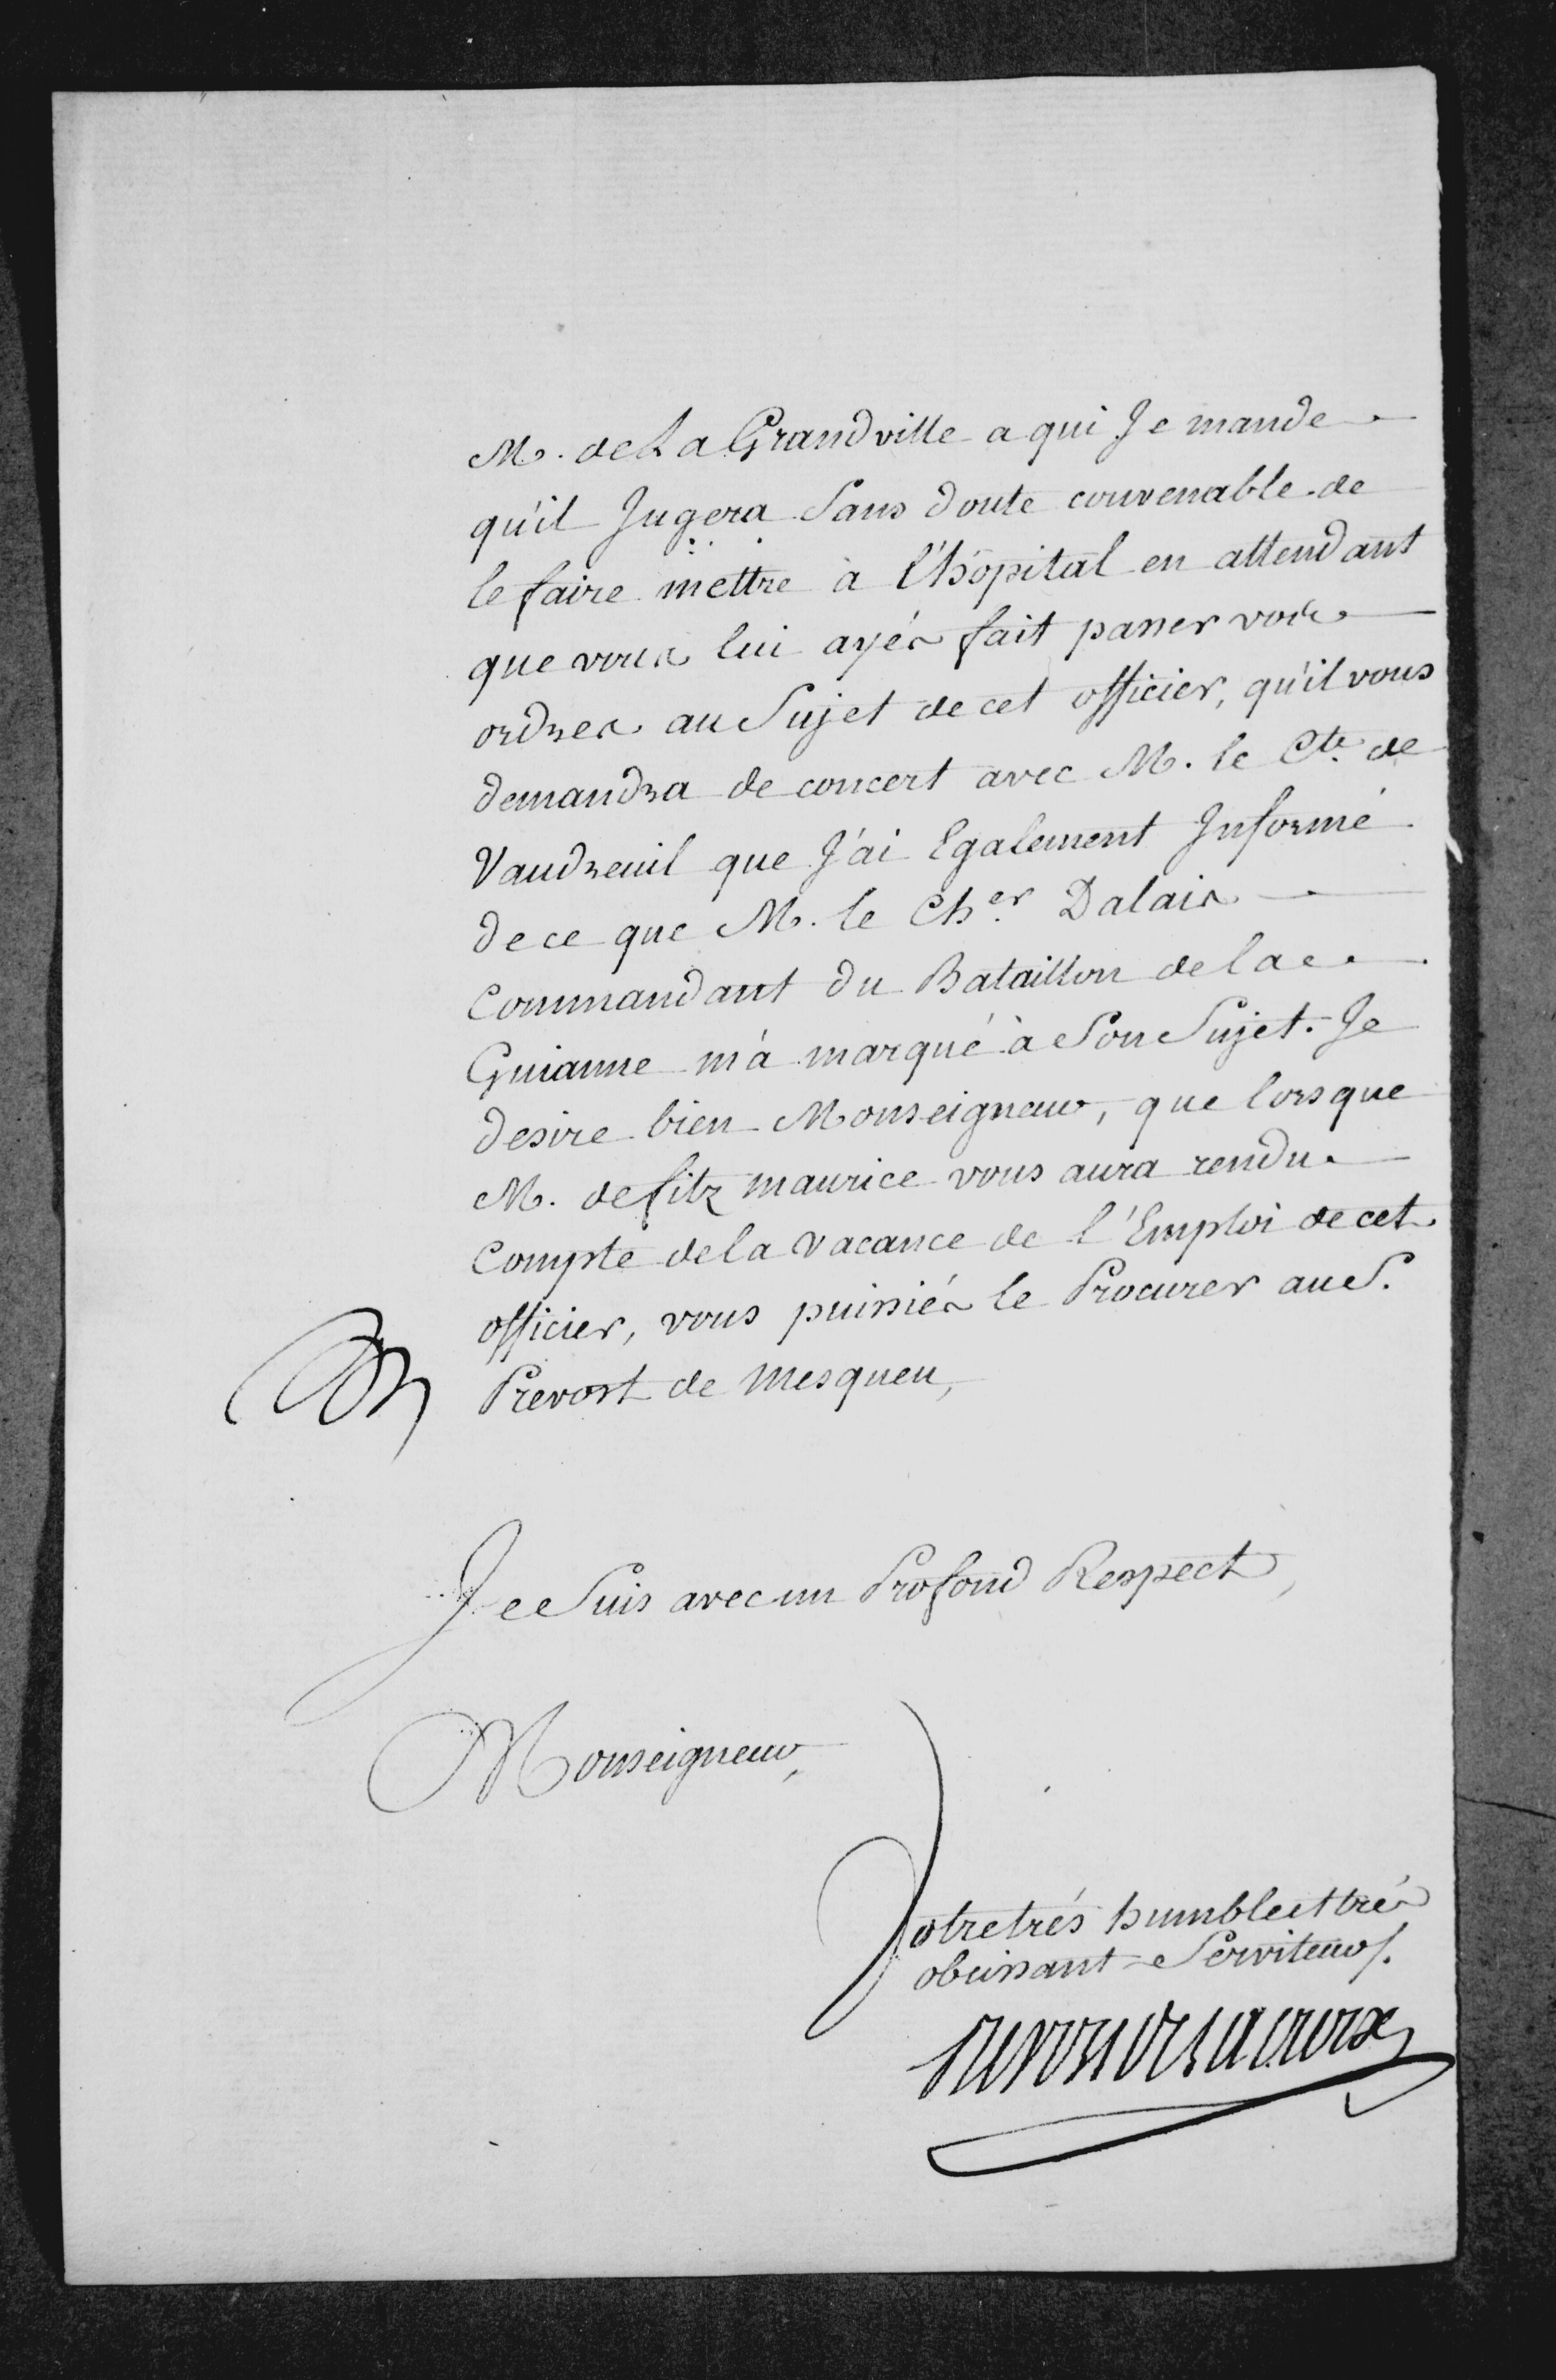 M. de La Grandville a qui Je mande
qu'il Jugera Sans doute convenable de
le faire mettre à l'hôpital en attendant
que vous lui ayés fait passer vos
ordres au Sujet de cet officier, qu'il vous
demandra de concert avec M. le Cte. de
Vaudreuil que J'ai Egalement Informé
de ce que M. le Cher. Dalais
Commandant du Bataillon de la
Guianne m'a marqué à Son Sujet. Je
desire bien Monseigneur, que lorsque
M. de fitz maurice vous aura rendu
Compte de la vacance de l'Emploi de cet
officier, vous puissiés le Procurer au S.
Prevost de Mesqueu,
Je Suis avec un Profond Respect,
Monseigneur,
Votre trés humble et trés
obeissant Serviteur.
prevost de la croix